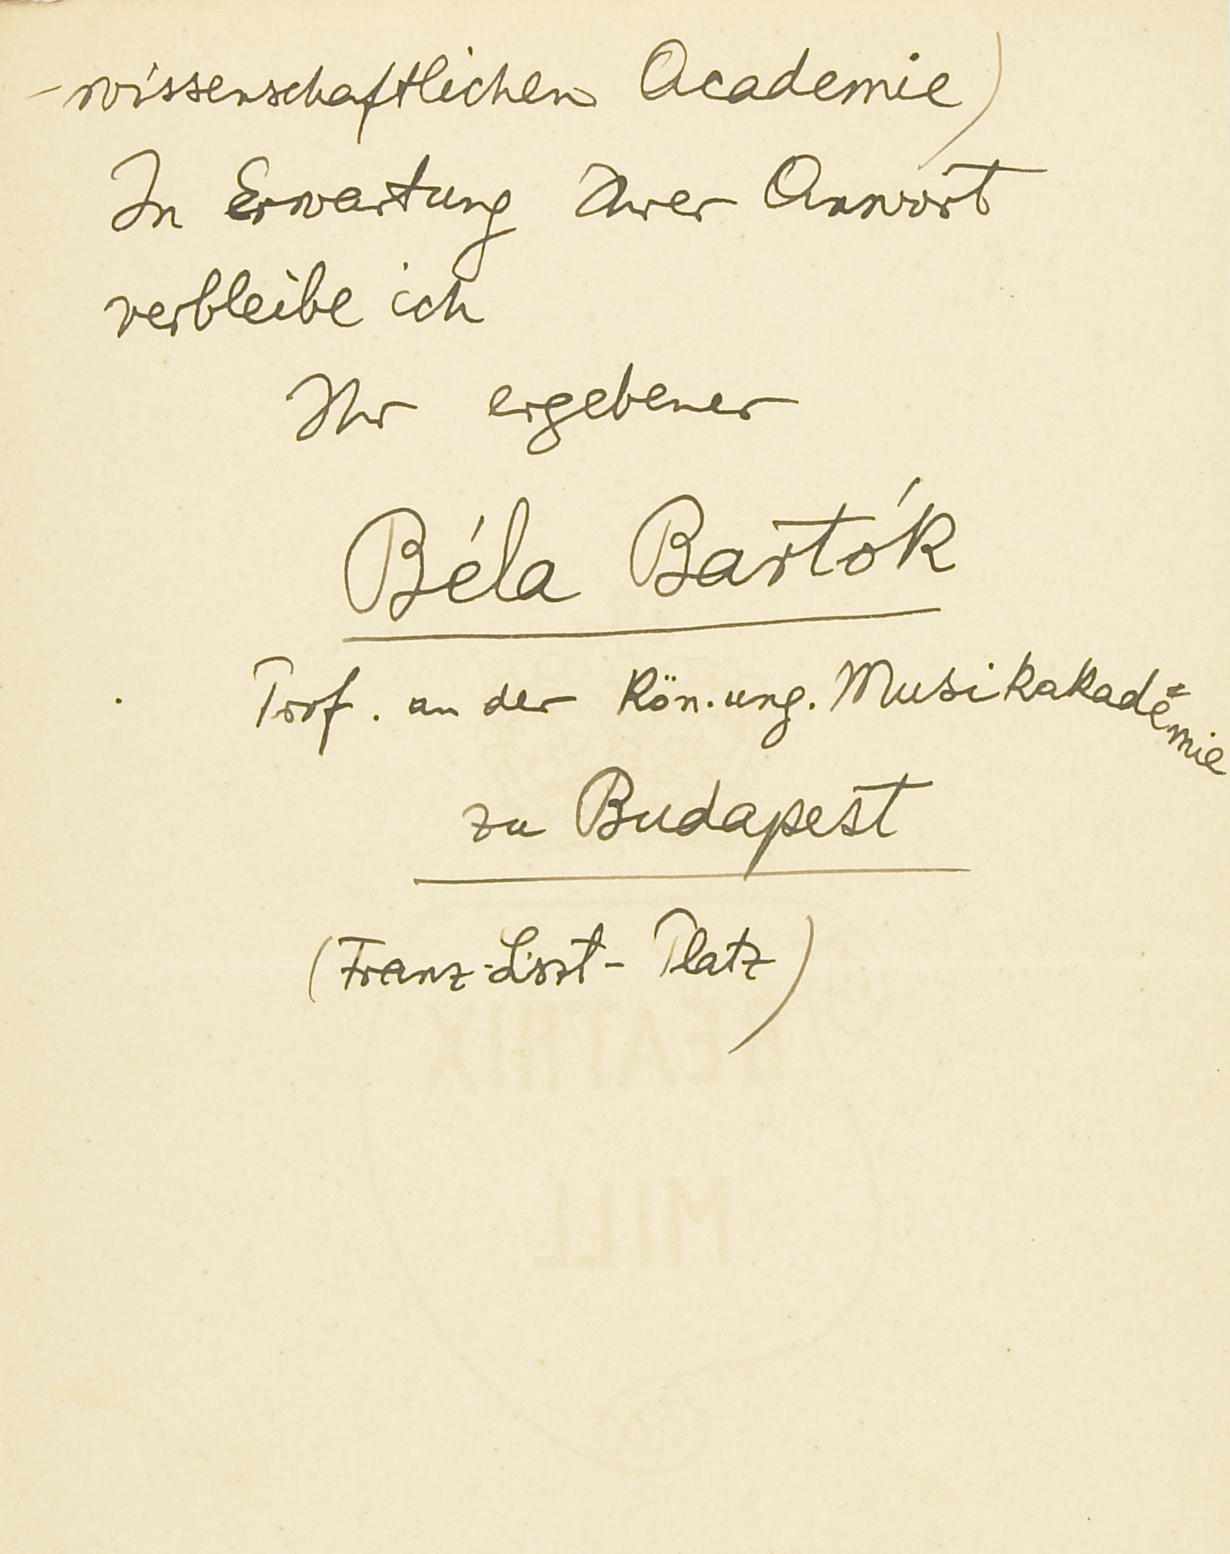 -wissenschaftlichen Academie)
In Erwartung Ihrer Anwort
verbleibe ich
Ihr ergebener
Béla Bartók
Prof. an der Kön. ung. Musikakademie
zu Budapest
(Franz-Liszt-Platz)
BEATRIX
MILL